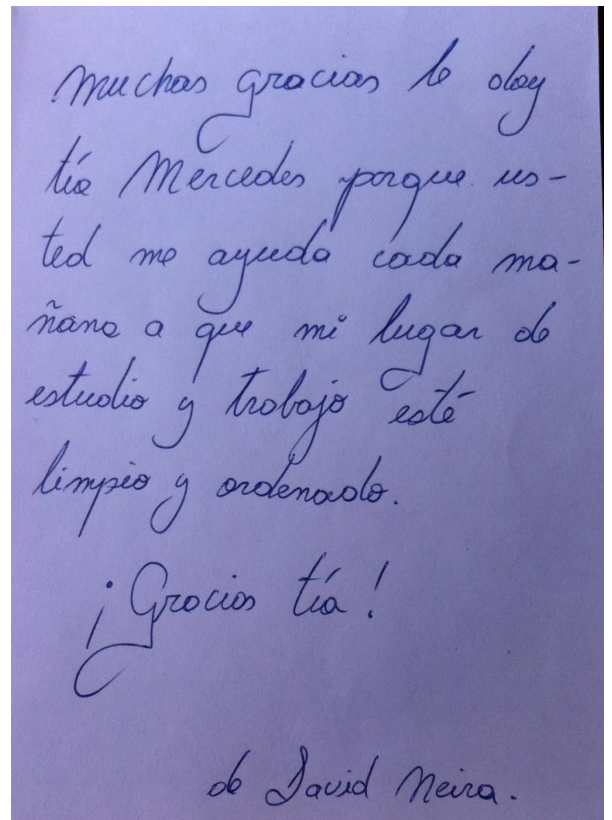 Muchas gracias le doy
tía Mercedes porque us-
ted me ayuda cada ma-
ñana a que mi lugar de
estudio y trabajo esté
limpio y ordenado.
¡Gracias tía!
de David Neira.